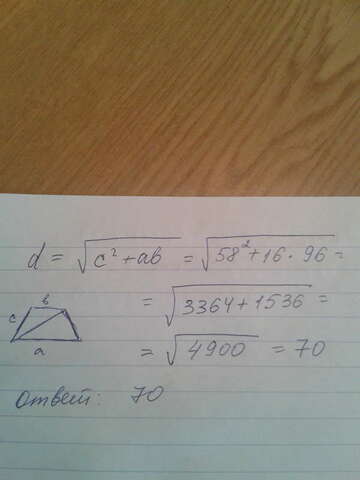 d = √(c² + ab) = √(58² + 16 · 96) =
= √(3364 + 1536) =
b
c
a
= √4900 = 70
ответ: 70